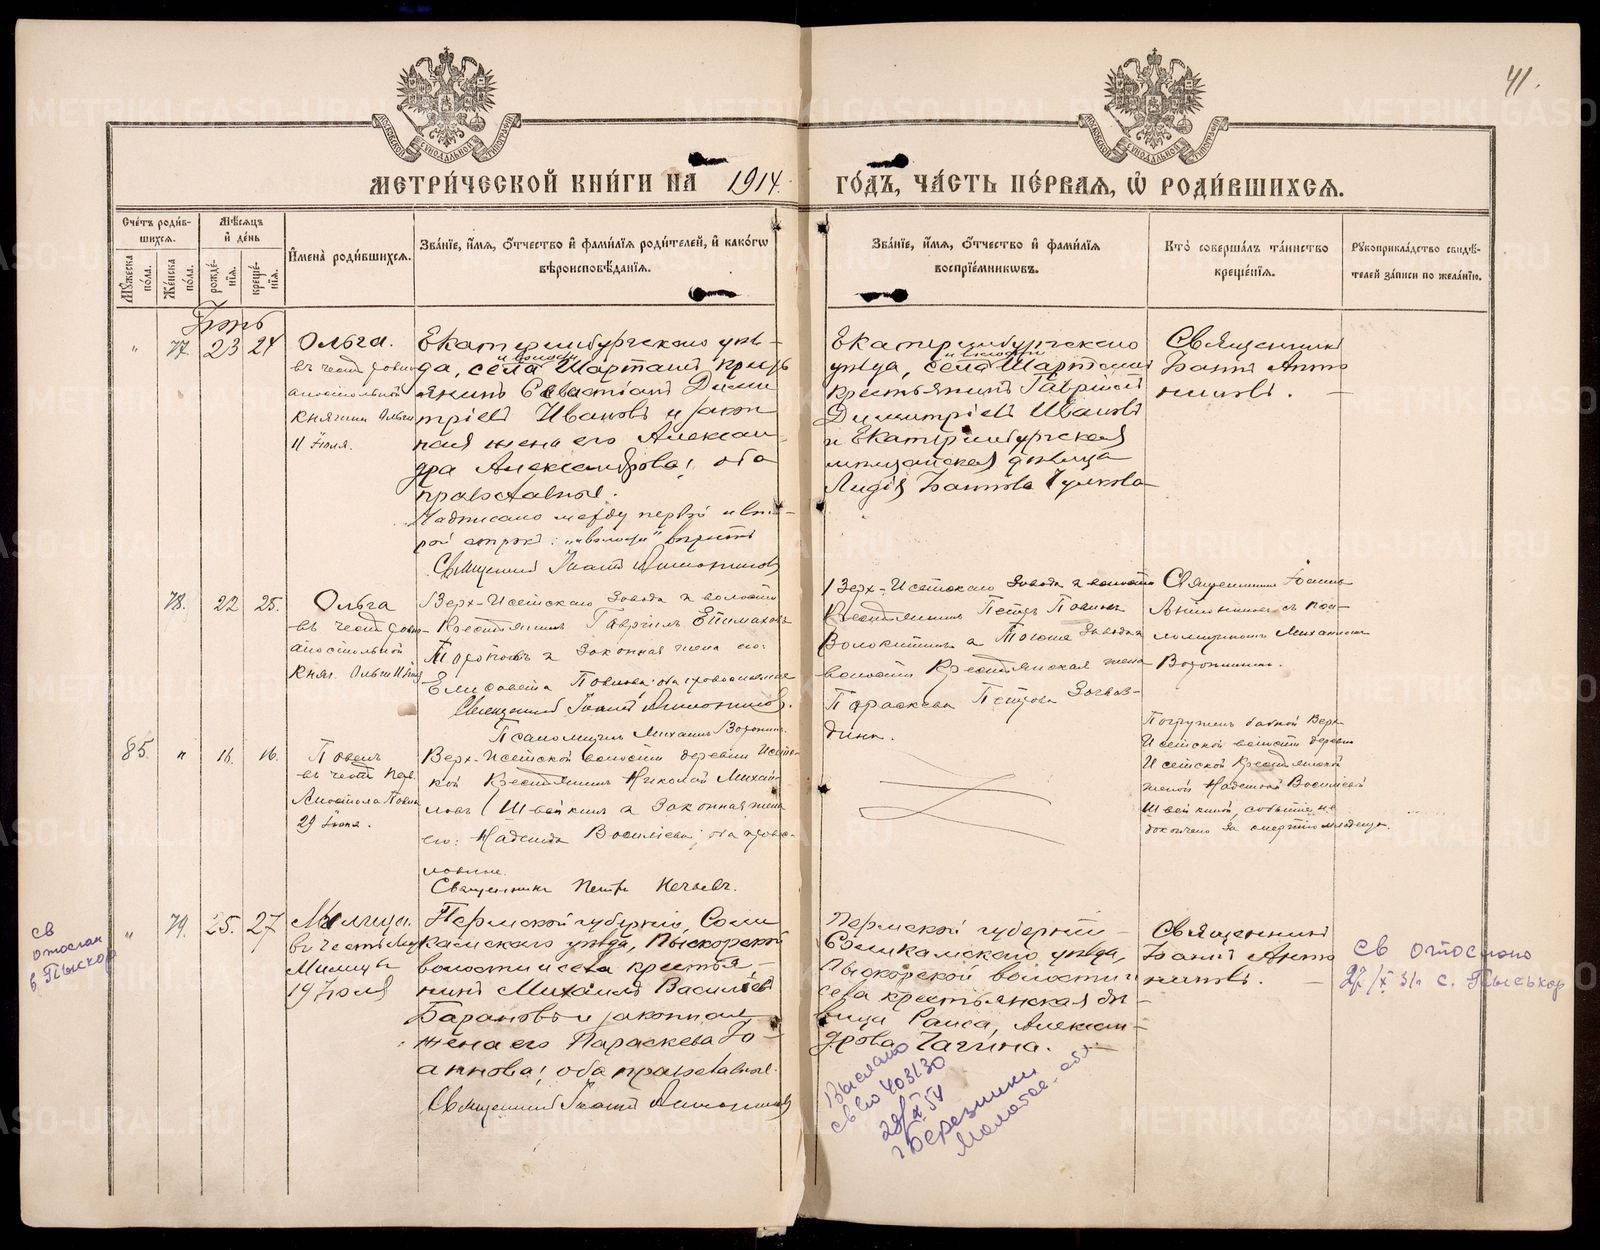 41.
МЕТРИ́ЧЕСКОЙ КНИ́ГИ НА 1914 ГО́ДЪ, ЧА́СТЬ ПЕ́РВАѦ, Ѡ҆ РОДИ́ВШИХСѦ.
Сче́тъ роди́в-
шихсѧ.
Мѣ́сѧцъ
и҆ де́нь
Мꙋ́жеска по́ла.
Же́нска по́ла.
рожде́-
нїѧ.
креще́-
нїѧ.
И҆мена̀ роди́вшихсѧ.
Зва́нїе, и҆́мѧ, ѻ҆́тчество и҆ фами́лїѧ роди́телей, и҆ како́гѡ
вѣроисповѣ́данїѧ.
Зва́нїе, и҆́мѧ, ѻ҆́тчество и҆ фами́лїѧ
воспрїе́мникѡвъ.
Кто̀ соверша́лъ та́инство
креще́нїѧ.
Рꙋкоприкла́дство свидѣ́-
телей за́писи по жела́нїю.
Іюнь
" 77. 23 24
Ольга.
въ честь равно
апостольной
княгини Ольги
11 Іюля.
Екатеринбургскаго уѣз-
и волости
да, села Шарташ крест
янинъ Севастіанъ Дими
тріевъ Ивановъ и закон
ная жена его Алексан-
дра Александрова; оба
православные.
Надписано между первой и вто-
рой строк: "и волости" вѣрить
Священникъ Іоаннъ Антониновъ
Екатеринбургскаго
и волости
уѣзда, села Шарташа
крестьянинъ Гавріилъ
Димитріевъ Ивановъ
и Екатеринбургская
мѣщанская дѣвица
Лидія Іоаннова Чулкова
Священникъ
Іоаннъ Анто
ниновъ.
78. 22 25.
Ольга
въ честь равно-
апостольной
княг. Ольги 11 Іюля
Верх-Исетскаго Завода и волости
Крестьянинъ Гавріилъ Епимаховъ
Тороповъ и Законная жена его
Елисавета Павлова: оба православные
Священникъ Іоаннъ Антониновъ.
Псаломщикъ Михаилъ Воронин.
Верх-Исетскаго Завода и волости
Крестьянинъ Петръ Павловъ
Волокитинъ и Того же Завода и
волости Крестьянская жена
Параскева Петрова Загвоз-
дина.
Священникъ Іоаннъ
Антониновъ съ пса-
ломщикомъ Михаиломъ
Воронинымъ.
85. " 16. 16.
Павелъ
въ честь Перв.
Апостола Павла
29 Іюня.
Верх-Исетской волости деревни Исет-
кой Крестьянинъ Николай Михай
ловъ Швейкинъ и Законная жена
его: Надежда Васильева; оба право-
славные.
Священникъ Петръ Нечаевъ.
Погруженъ бабкой Верх-
Исетской волости деревни
Исетской Крестьянской
женой Надеждой Васильевой
Швейкиной, событие не
докончено за смертію младенца.
" 79. 25. 27
Милица.
въ честь Муч
Милицы
19 Іюля
Пермской губерніи, Соли
камскаго уѣзда, Пыскорской
волости и села крестья-
нинъ Михаилъ Васильевъ
Барановъ и законная
жена его Параскева Іо-
аннова; оба православные.
Священникъ Іоаннъ Антониновъ
Пермской губерніи
Соликамскаго уѣзда,
Пыскорской волости и
села крестьянская дѣ-
вица Раиса, Алексан-
дрова Чагина.
Священникъ
Іоаннъ Анто
ниновъ.
св
отослан
в Пыскор
св отослано
27/X 31 г. с. Пыскор
Выслано
св во 403130
28/X 54
г Березники
Молотов. обл.